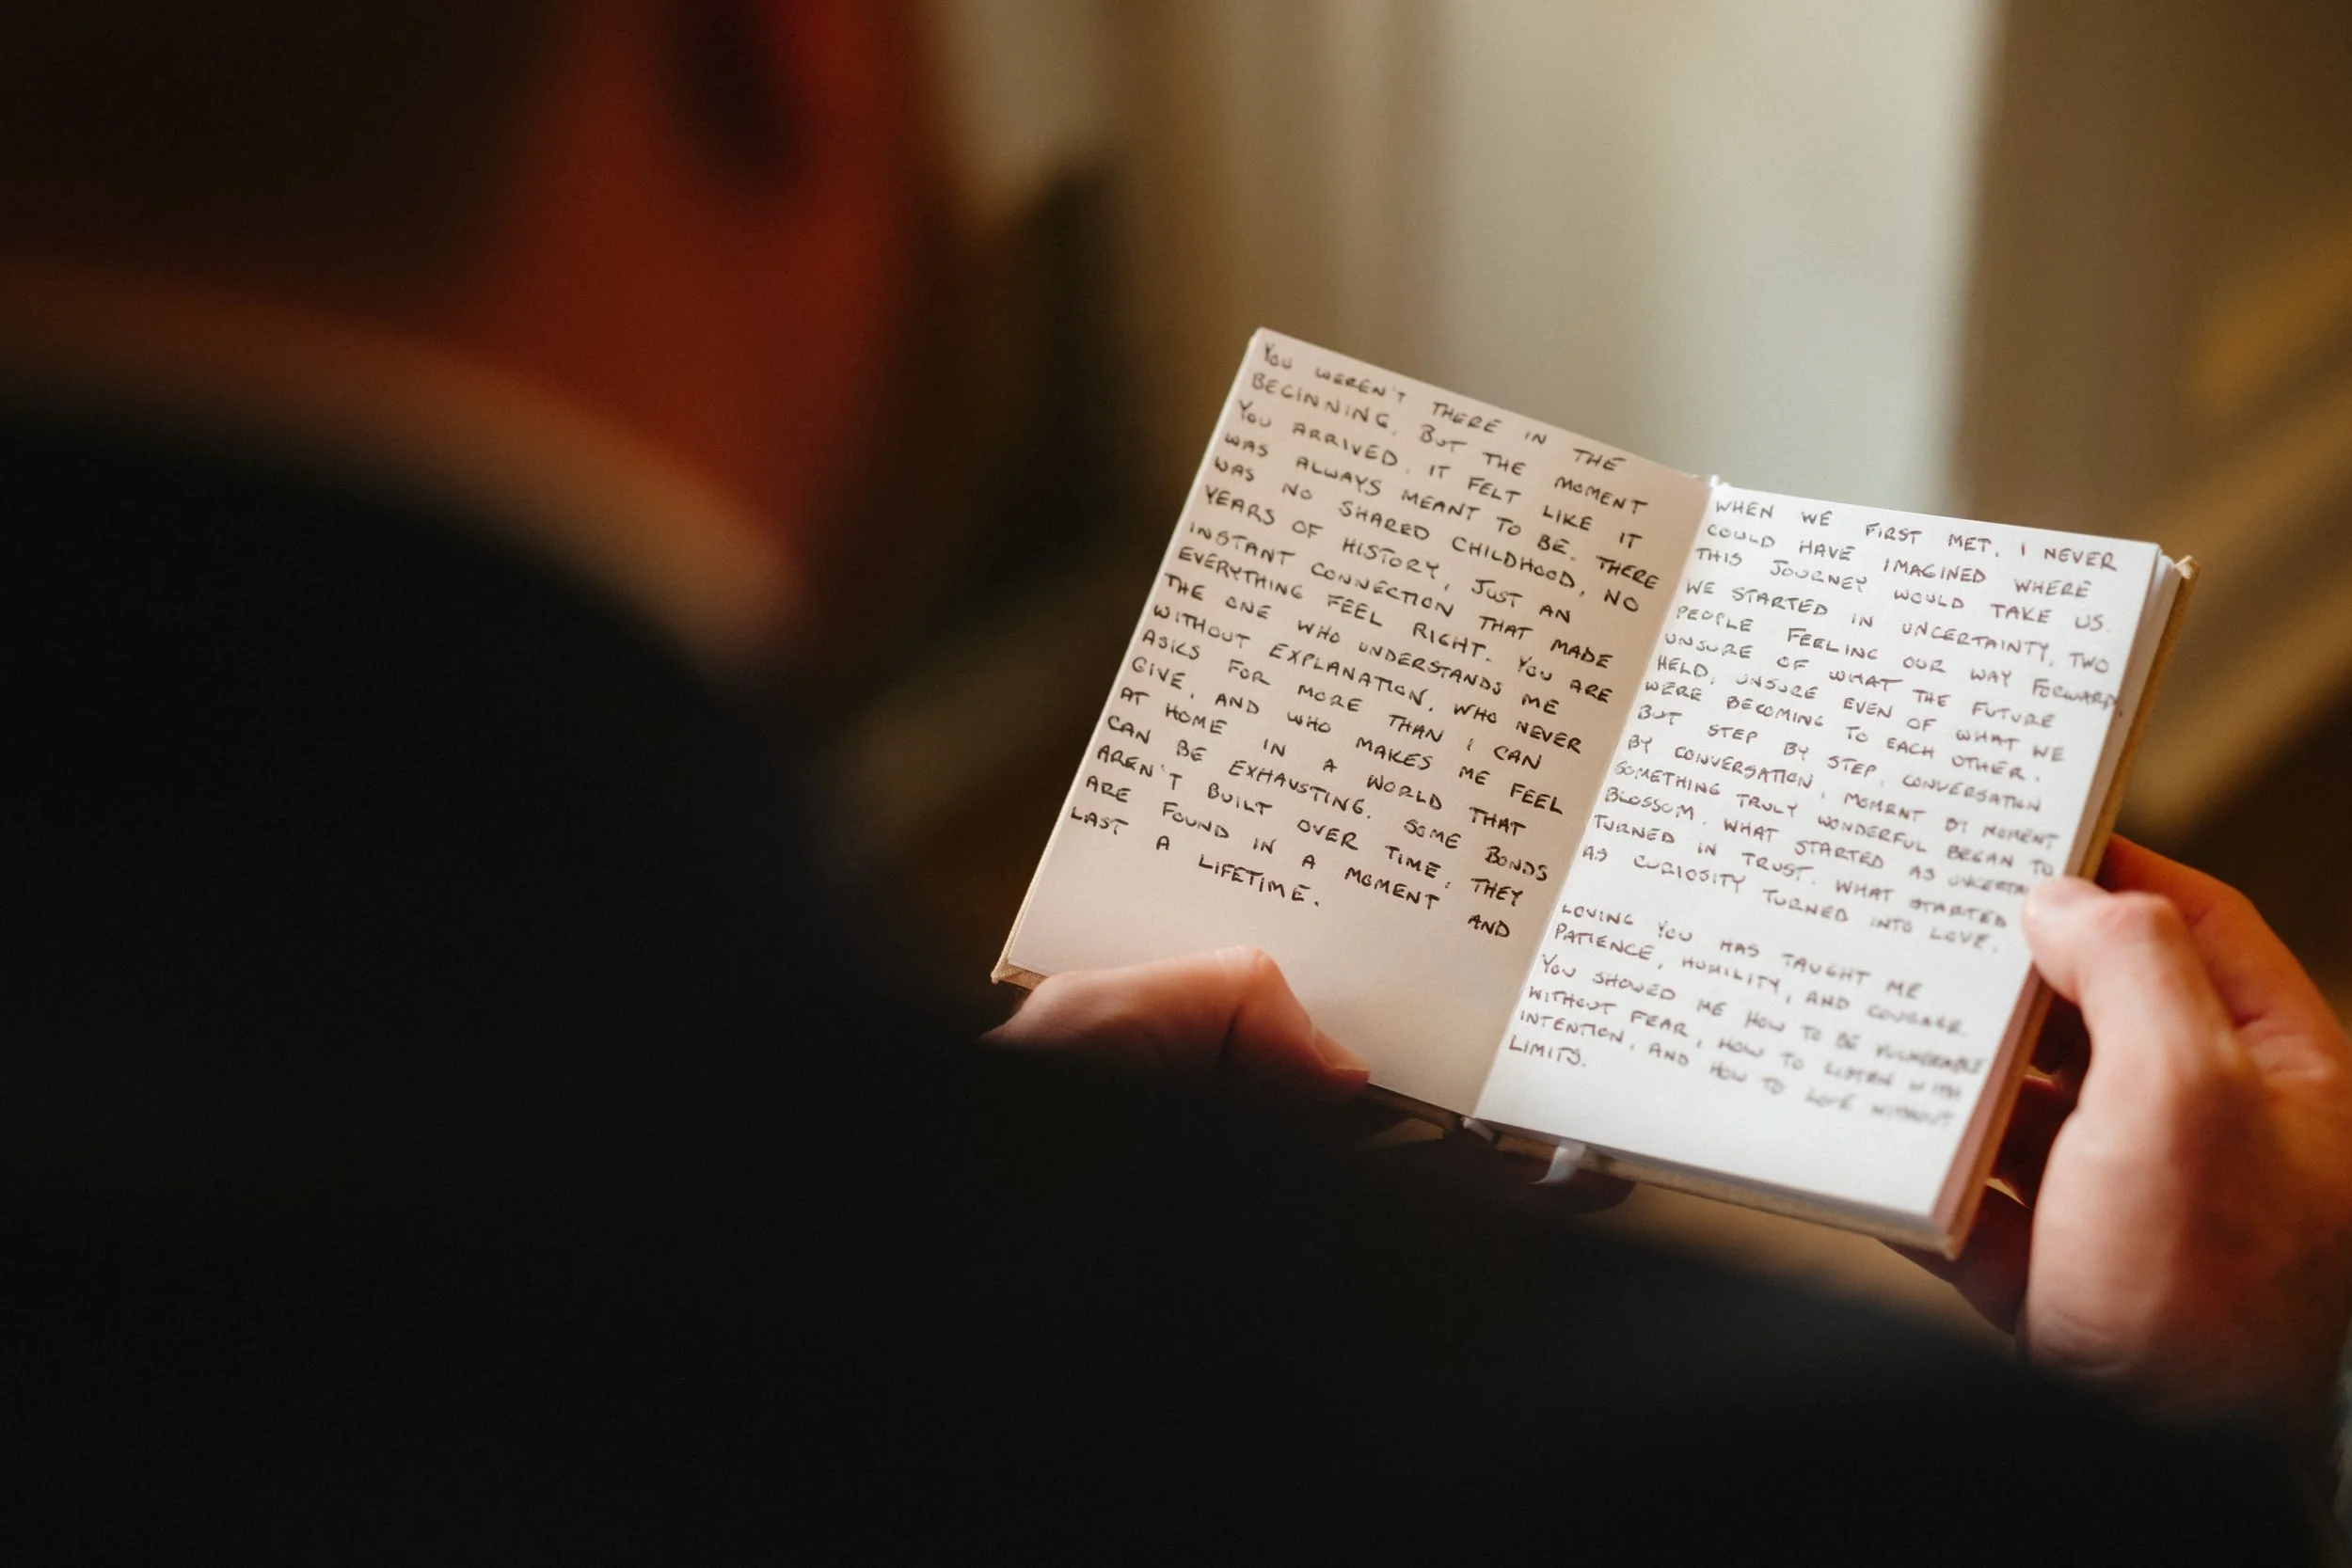 YOU WEREN'T THERE IN THE
BEGINNING. BUT THE MOMENT
YOU ARRIVED. IT FELT LIKE IT
WAS ALWAYS MEANT TO BE. THERE
WAS NO SHARED CHILDHOOD, NO
YEARS OF HISTORY, JUST AN
INSTANT CONNECTION THAT MADE
EVERYTHING FEEL RIGHT. YOU ARE
THE ONE WHO UNDERSTANDS ME
WITHOUT EXPLANATION. WHO NEVER
ASKS FOR MORE THAN I CAN
GIVE, AND WHO MAKES ME FEEL
AT HOME IN A WORLD THAT
CAN BE EXHAUSTING. SOME BONDS
AREN'T BUILT OVER TIME. THEY
ARE FOUND IN A MOMENT AND
LAST A LIFETIME.
WHEN WE FIRST MET, I NEVER
COULD HAVE IMAGINED WHERE
THIS JOURNEY WOULD TAKE US.
WE STARTED IN UNCERTAINTY, TWO
PEOPLE FEELING OUR WAY FORWARD,
UNSURE OF WHAT THE FUTURE
HELD, UNSURE EVEN OF WHAT WE
WERE BECOMING TO EACH OTHER.
BUT STEP BY STEP, CONVERSATION
BY CONVERSATION, MOMENT BY MOMENT
SOMETHING TRULY WONDERFUL BEGAN TO
BLOSSOM. WHAT STARTED AS
TURNED IN TRUST. WHAT STARTED
AS CURIOSITY TURNED INTO LOVE.
LOVING YOU HAS TAUGHT ME
PATIENCE, HUMILITY, AND COURAGE.
YOU SHOWED ME HOW TO BE VULNERABLE
WITHOUT FEAR, HOW TO LISTEN WITH
INTENTION, AND HOW TO LOVE WITHOUT
LIMITS.